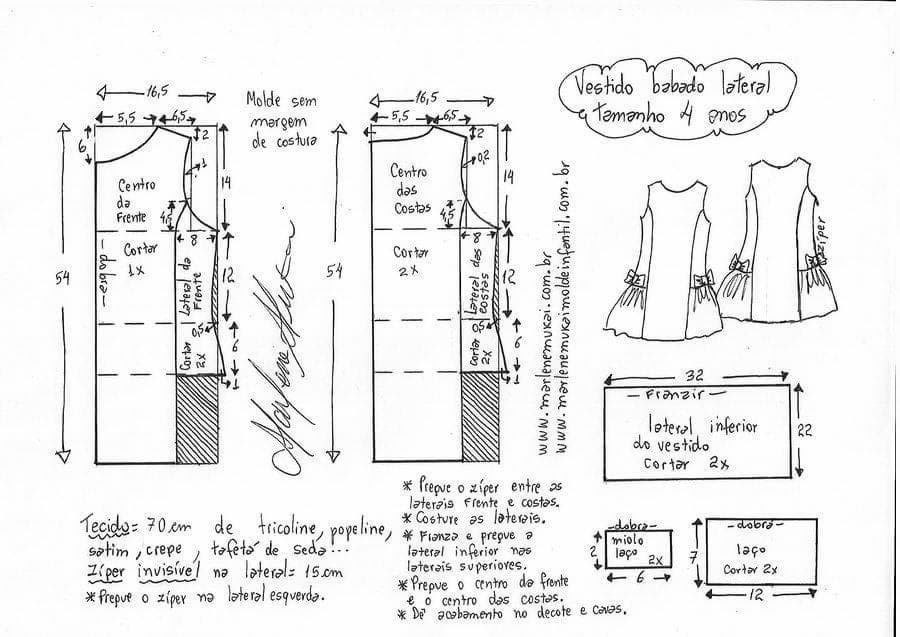 Vestido babado lateral
tamanho 4 anos
Molde sem
margem
de costura
16,5
5,5
6,5
6
2
1
14
Centro
da
Frente
4,5
8
dobra
Cortar
1x
Lateral da
Frente
12
54
0,5
Cortar
2x
6
1
16,5
5,5
6,5
2
0,2
14
Centro
das
Costas
4,5
8
Cortar
2x
Lateral das
costas
12
54
0,5
Cortar
2x
6
1
www.marlenemukai.com.br
www.marlenemukaimoldeinfantil.com.br
zíper
32
- Franzir -
lateral inferior
do vestido
Cortar 2x
22
-dobra-
miolo
laço
2x
2
6
-dobra-
laço
Cortar 2x
7
12
Tecido= 70cm de tricoline, popeline,
satim, crepe, tafetá de seda...
Zíper invisível na lateral= 15cm
* Pregue o zíper na lateral esquerda.
* Pregue o zíper entre as
laterais frente e costas.
* Costure as laterais.
* Franza e pregue a
lateral inferior nas
laterais superiores.
* Pregue o centro da frente
e o centro das costas.
* Dê acabamento no decote e cavas.